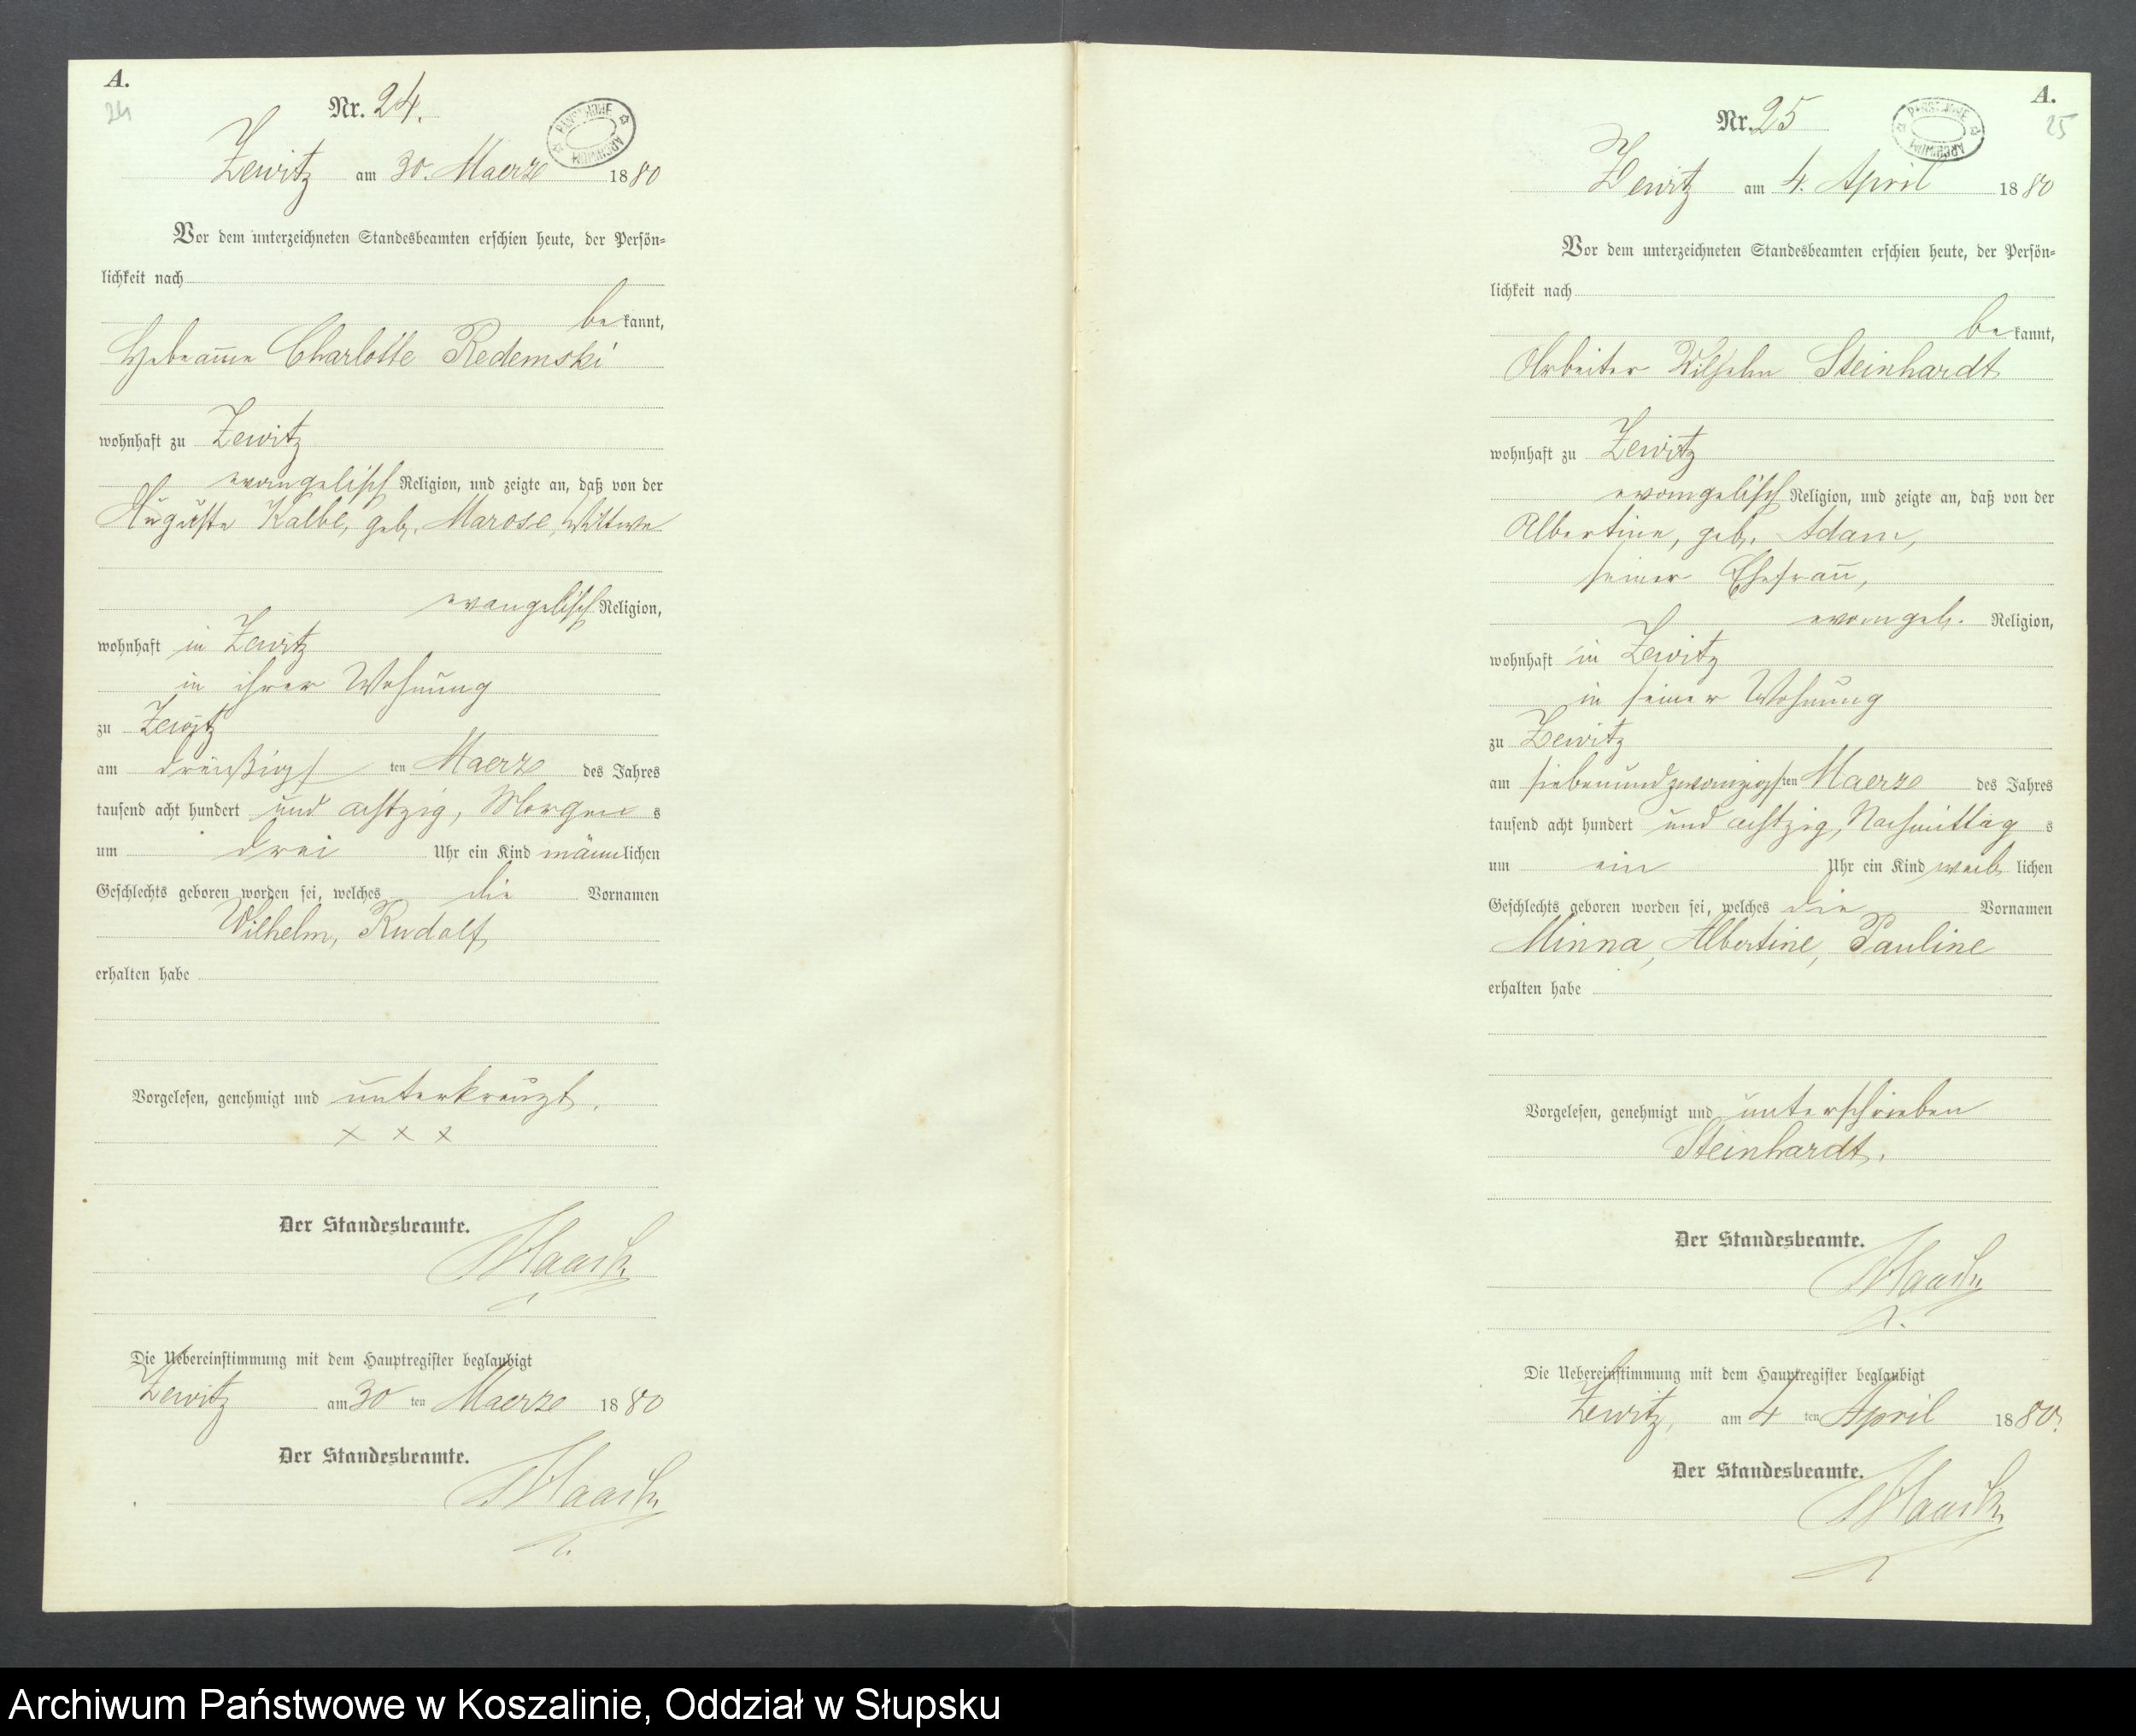 A.
24
Nr. 24.
PAŃSTWOWE ARCHIWUM
Zewitz am 30. Maerz 1880
Vor dem unterzeichneten Standesbeamten erschien heute, der Persön-
lichkeit nach
be kannt,
Hebamme Charlotte Redemski
wohnhaft zu Zewitz
evangelisch Religion, und zeigte an, daß von der
Auguste Kalbe, geb. Marose, Wittwe
evangelisch Religion,
wohnhaft in Zewitz
in ihrer Wohnung
zu Zewitz
am dreißigst ten Maerz des Jahres
tausend acht hundert und achtzig, Morgen s
um drei Uhr ein Kind männlichen
Geschlechts geboren worden sei, welches die Vornamen
Wilhelm, Rudolf
erhalten habe
Vorgelesen, genehmigt und unterkreuzt.
x x x
Der Standesbeamte.
Die Uebereinstimmung mit dem Hauptregister beglaubigt
Zewitz am 30 ten Maerz 1880
Der Standesbeamte.
A.
25
Nr. 25
PAŃSTWOWE ARCHIWUM
Zewitz am 4. April 1880
Vor dem unterzeichneten Standesbeamten erschien heute, der Persön-
lichkeit nach
be kannt,
Arbeiter Wilhelm Steinhardt
wohnhaft zu Zewitz
evangelisch Religion, und zeigte an, daß von der
Albertine, geb. Adam,
seiner Ehefrau,
evangel. Religion,
wohnhaft in Zewitz
in seiner Wohnung
zu Zewitz
am siebenundzwanzigsten Maerz des Jahres
tausend acht hundert und achtzig, Nachmittag s
um ein Uhr ein Kind weib lichen
Geschlechts geboren worden sei, welches die Vornamen
Minna, Albertine, Pauline
erhalten habe
Vorgelesen, genehmigt und unterschrieben
Steinhardt.
Der Standesbeamte.
Die Uebereinstimmung mit dem Hauptregister beglaubigt
Zewitz, am 4 ten April 1880.
Der Standesbeamte.
Archiwum Państwowe w Koszalinie, Oddział w Słupsku